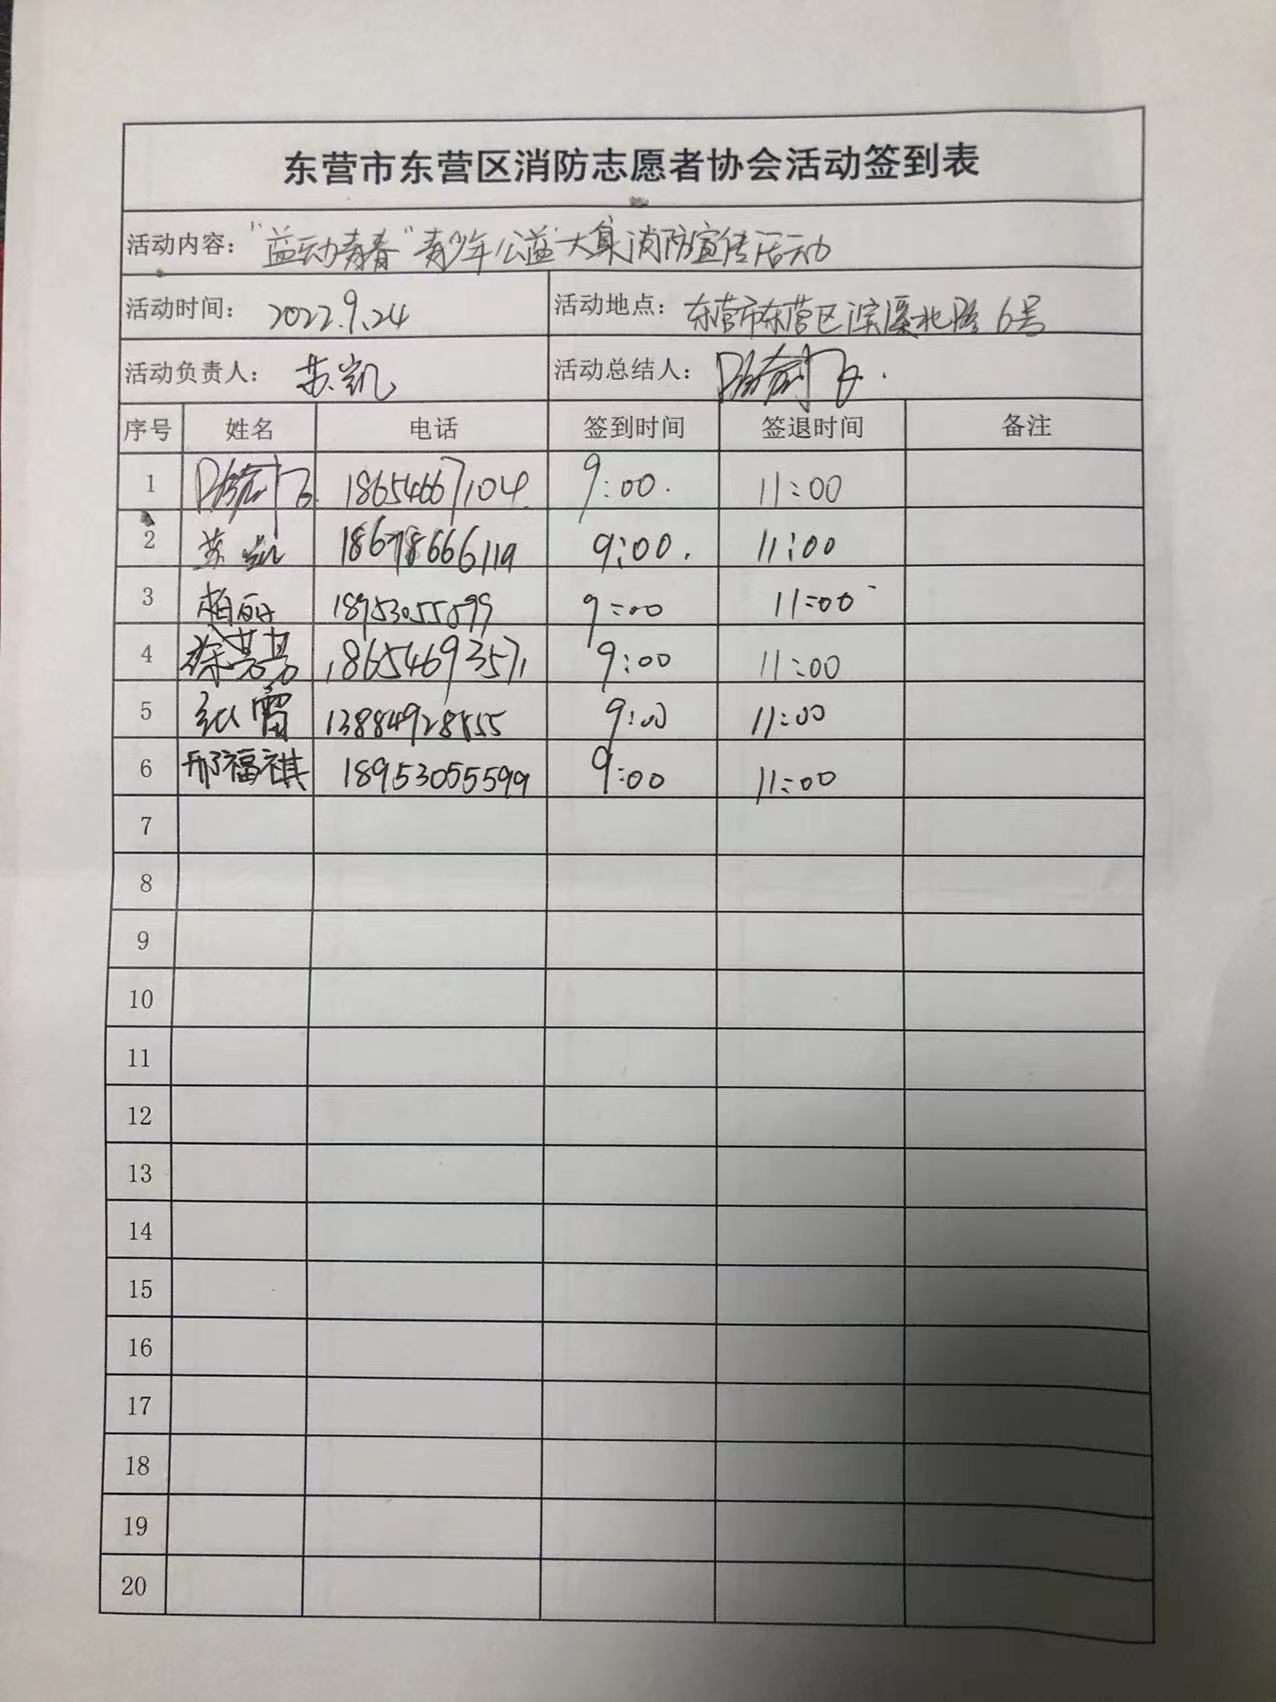 东营市东营区消防志愿者协会活动签到表
活动内容：“益动青春”青少年公益大集消防宣传活动
活动时间：2022.9.24 活动地点：东营市东营区滨溪北路6号
活动负责人：苏凯 活动总结人：
序号 姓名 电话 签到时间 签退时间 备注
1 18654667104 9:00 11:00
2 苏凯 18678666119 9:00 11:00
3 柏丽 18953055599 9:00 11:00
4 徐芸芸 18654693571 9:00 11:00
5 雷 13884928855 9:00 11:00
6 邢福祺 18953055599 9:00 11:00
7
8
9
10
11
12
13
14
15
16
17
18
19
20